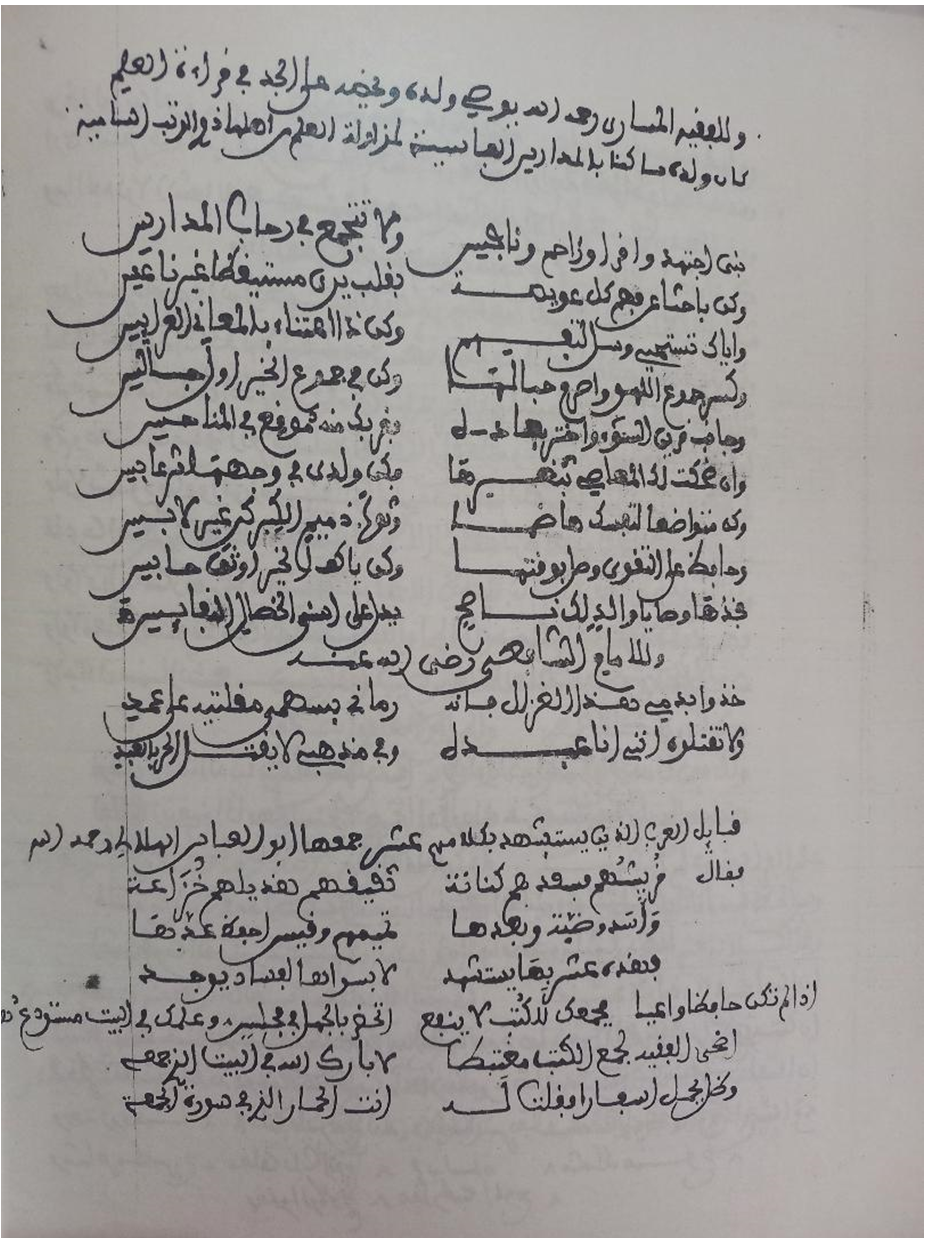 وللفقيه المسارى رحمه الله يوصي ولده ويحضه على الجد في قراءة العلم
كان ولده ساكنا بالمدارس العباسية لمزاولة العلم من أهلها ذوي الرتب السامية
بنى اجتهد واقرا وزاحم ونافس ولا تنتجع في رحاب المدارس
وكن باحثا عن فهم كل عويصة بقلب يرى مستيقظا غير ناعس
واياك تستحيي وسل التفهم وكن ذا اعتناء بالمعاني العرايس
وكسر جموع اللهو واصرم حبالها وكن في جموع الخير اول جالس
وجانب قرين السوء واحذر بهادل وقربك منه موقع في المناحس
وان ضحكت لك المعاصي بثغرها فكن ولدى في وجهها شر عابس
وكن متواضعا لنفسك هاضما وثوب ذميم الكبر كن غير لابس
وحافظ على التقوى وطرا بوقتها وكن يا كهل الخير اوثق حابس
فخذها وصايا والد لك ناصح يدل على اسنى الخصال النفايس
وللامام الشافعي رضي الله عنه
خذوا بدمي هذا الغزال فانه رماني بسهمي مقلتيه على عمد
ولا تقتلوه انني انا عبده وفي مذهبي لا يقتل الحر بالعبد
قبايل العرب الذين يستشهد بكلامهم عشر جمعها ابو العباس الهلالي رحمه الله
فقال قريشهم فسعد هم كنانة ثقيفهم هذيلهم خزاعة
وأسد وضبة وبعدها تميمهم وقيس احفظ عدها
فهذه عشر بها يستشهد لا بسواها لفساد يوجد
اذا لم تكن حافظا واعيا فجمعك للكتب لا ينفع اتحضر بالجهل في مجلس وعلمك في البيت مستودع
اضحى الفقيه لجمع الكتب مغتبطا لا بارك الله في البيت الذي جمعه
وظل يحمل اسفارا فقلت له انت الحمار الذي في سورة الجمعة